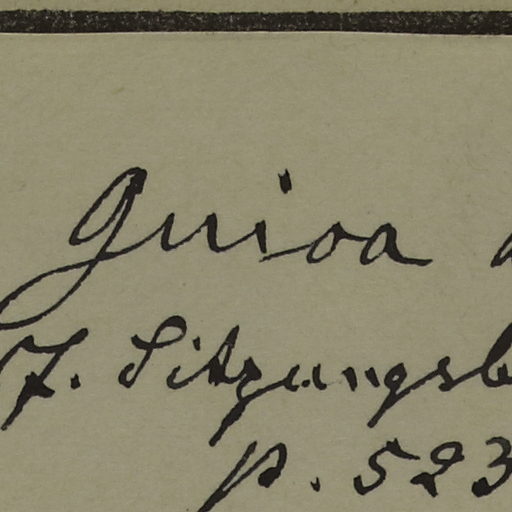 Guioa
7. Sitzungsb
p. 523